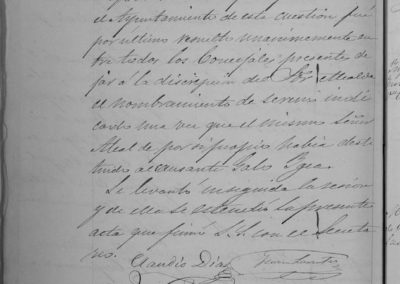 el Ayuntamiento de esta cuestión fué
por ultimo resuelto unanimemente en
tre todos los Concejales presentes de
jar á la discreción del Sor Alcalde
el nombramiento de sereno indi
cando una vez que el mismo Señor
Alcal de por si propio habia desti
tuido al causante Galo Egea.
Se levantó enseguida la sesión
y de ella se extendió la presente
acta que firmó S.S. con el Secreta
rio.
Claudio Diaz